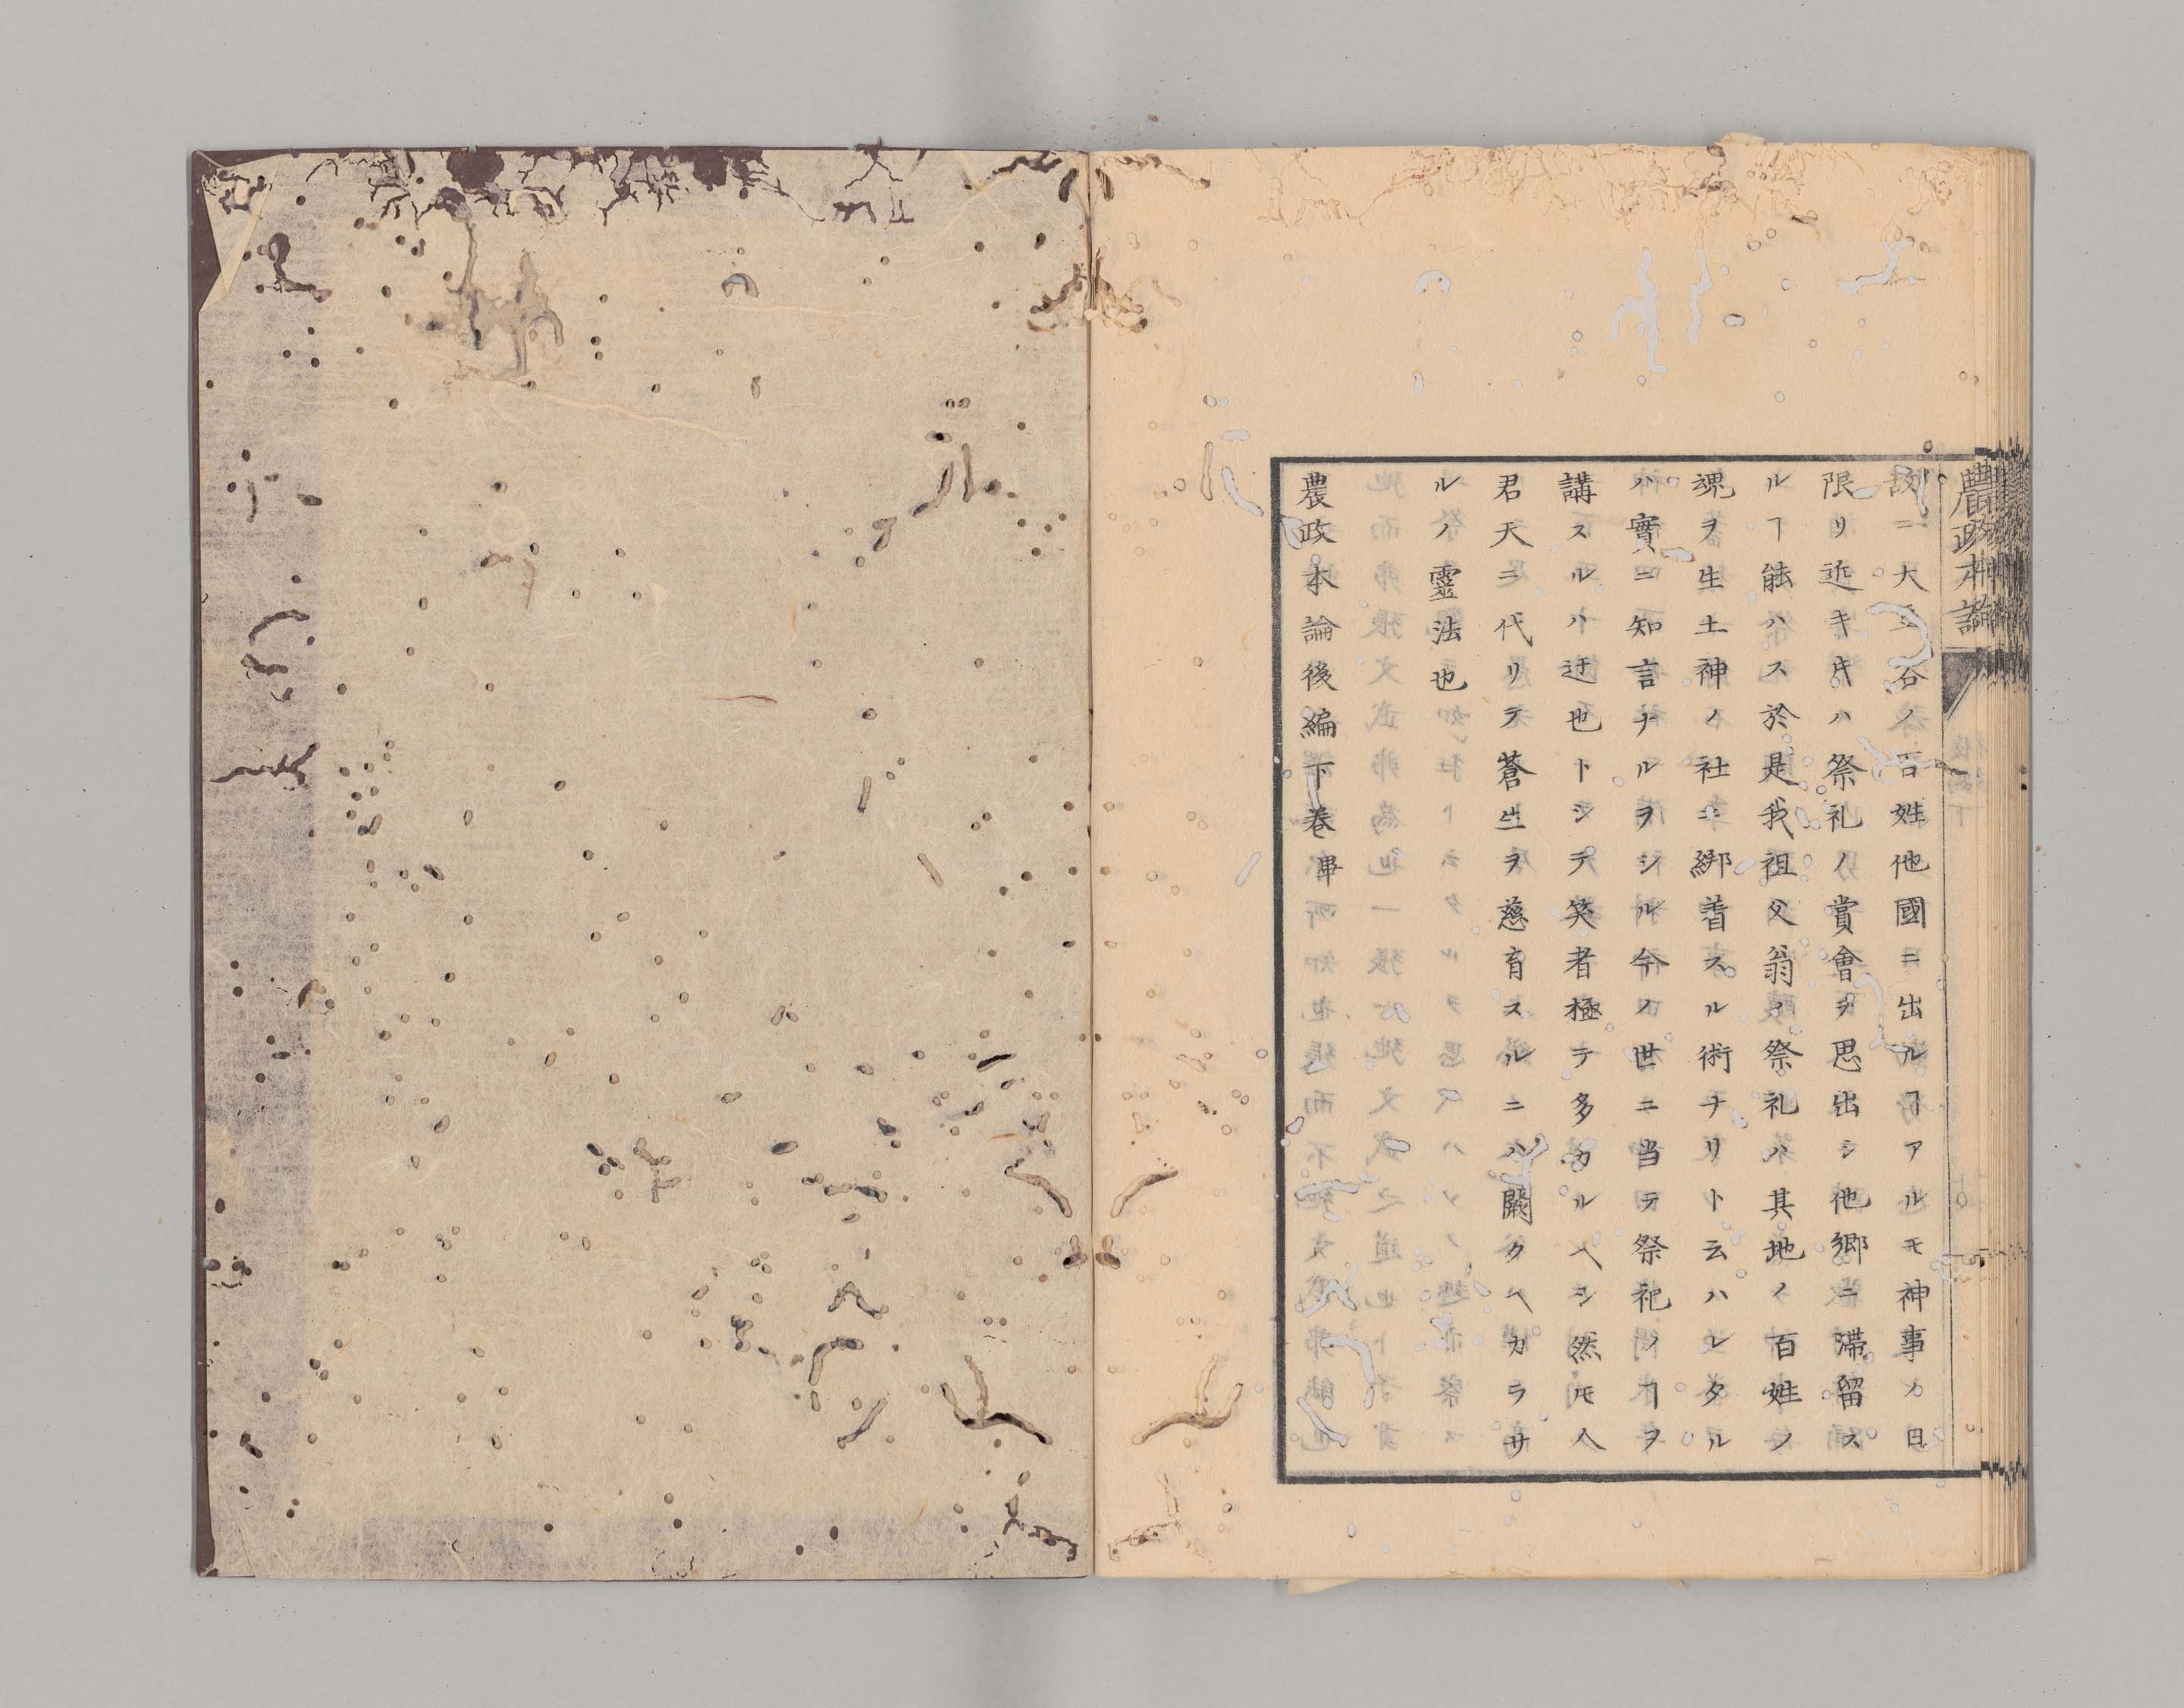 農政本論
故ニ大谷ノ百姓他國ニ出ルヿアルモ神事カ日
限リ近キ片ハ祭礼ノ賞會ヲ思出シ他郷ニ滞留ス
ルヿ能ハス於是我祖父翁ノ祭礼ハ其地ノ百姓ノ
魂ヲ生土神ノ社ニ綁着スル術ナリト云ハレタル
ハ實ニ知言ナルヲシル今ノ世ニ当テ祭祀ノヿヲ
講スルハ迂也トシテ笑者極テ多カルヘシ然モ人
君天ニ代リテ蒼生ヲ慈育スルニハ闕クヘカラサ
ルノ靈法也
農政本論後編下巻畢